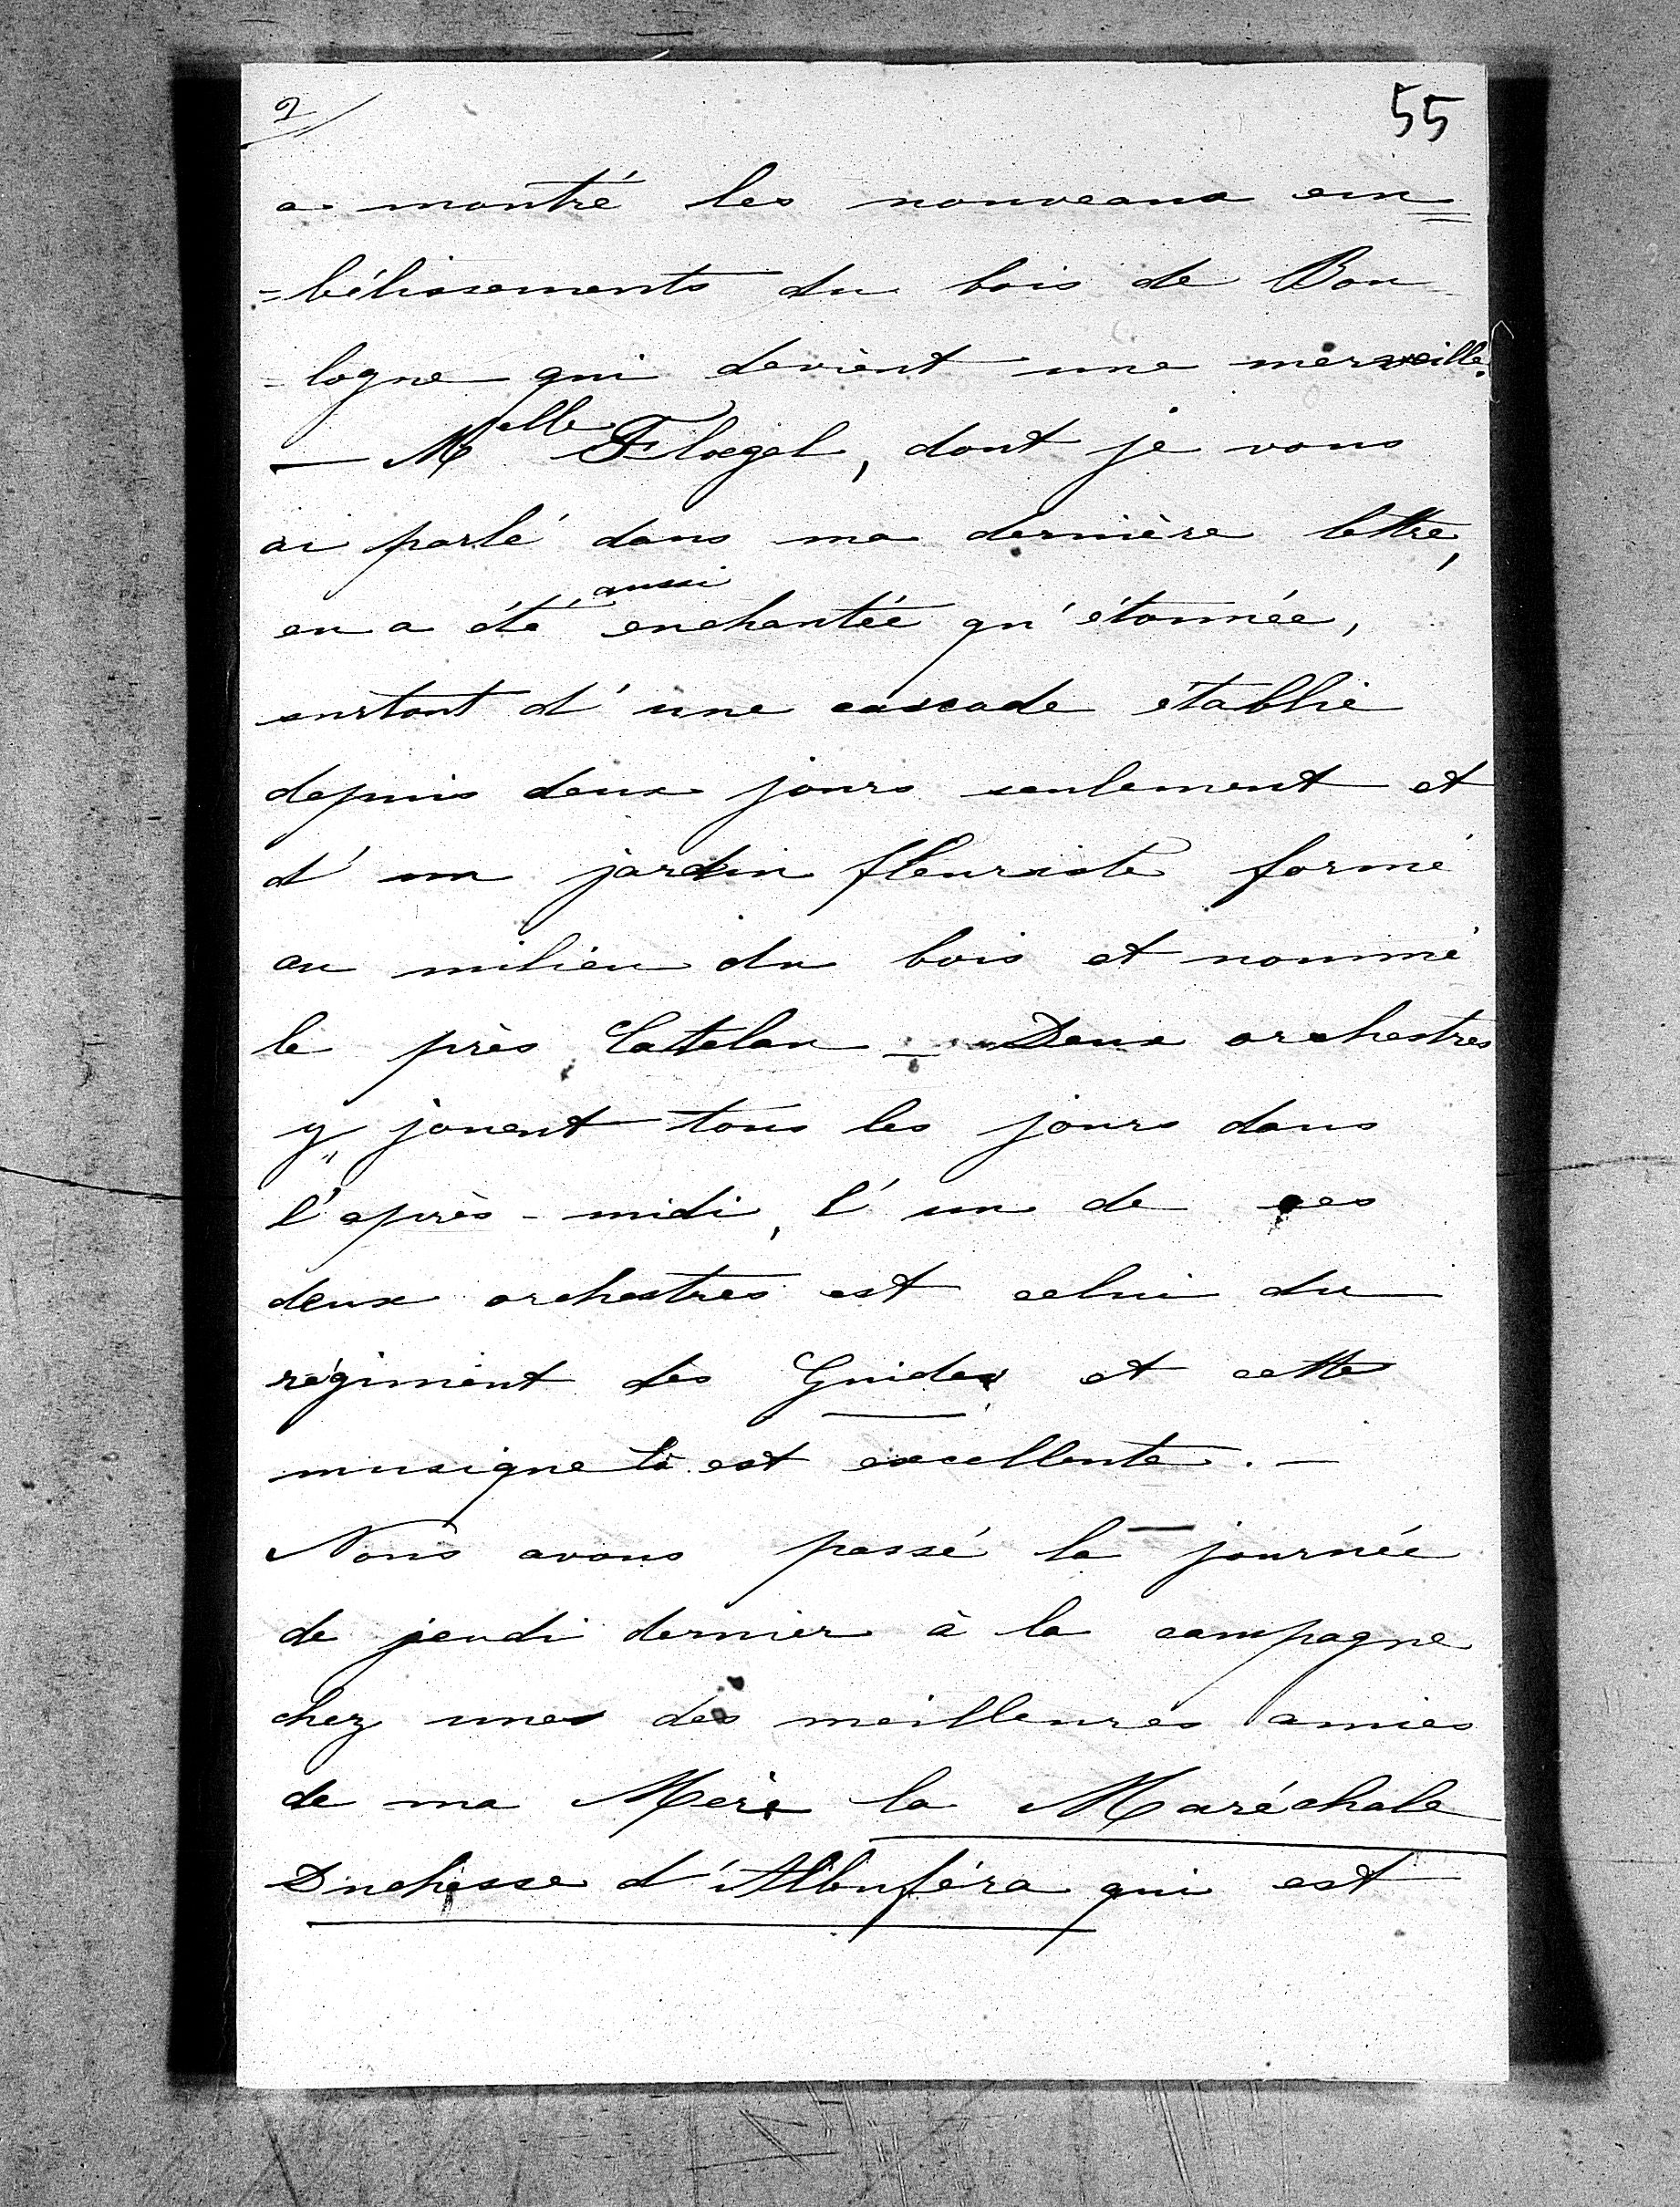 2
55
a montré les nouveaux em=
=bélissements du bois de Bou=
=logne qui devient une merveille.
— Melle Floegel, dont je vous
ai parlé dans ma dernière lettre,
en a été aussi enchantée qu'étonnée,
surtout d'une cascade établie
depuis deux jours seulement et
d'un jardin fleuriste formé
au milieu du bois et nommé
le près Catelan — Deux orchestres
y jouent tous les jours dans
l'après-midi, l'un de ces
deux orchestres est celui du
régiment des Guides, et cette
musique là est excellente. —
Nous avons passé la journée
de jeudi dernier à la campagne
chez une des meilleures amies
de ma Mère la Maréchale
Duchesse d'Albuféra qui est